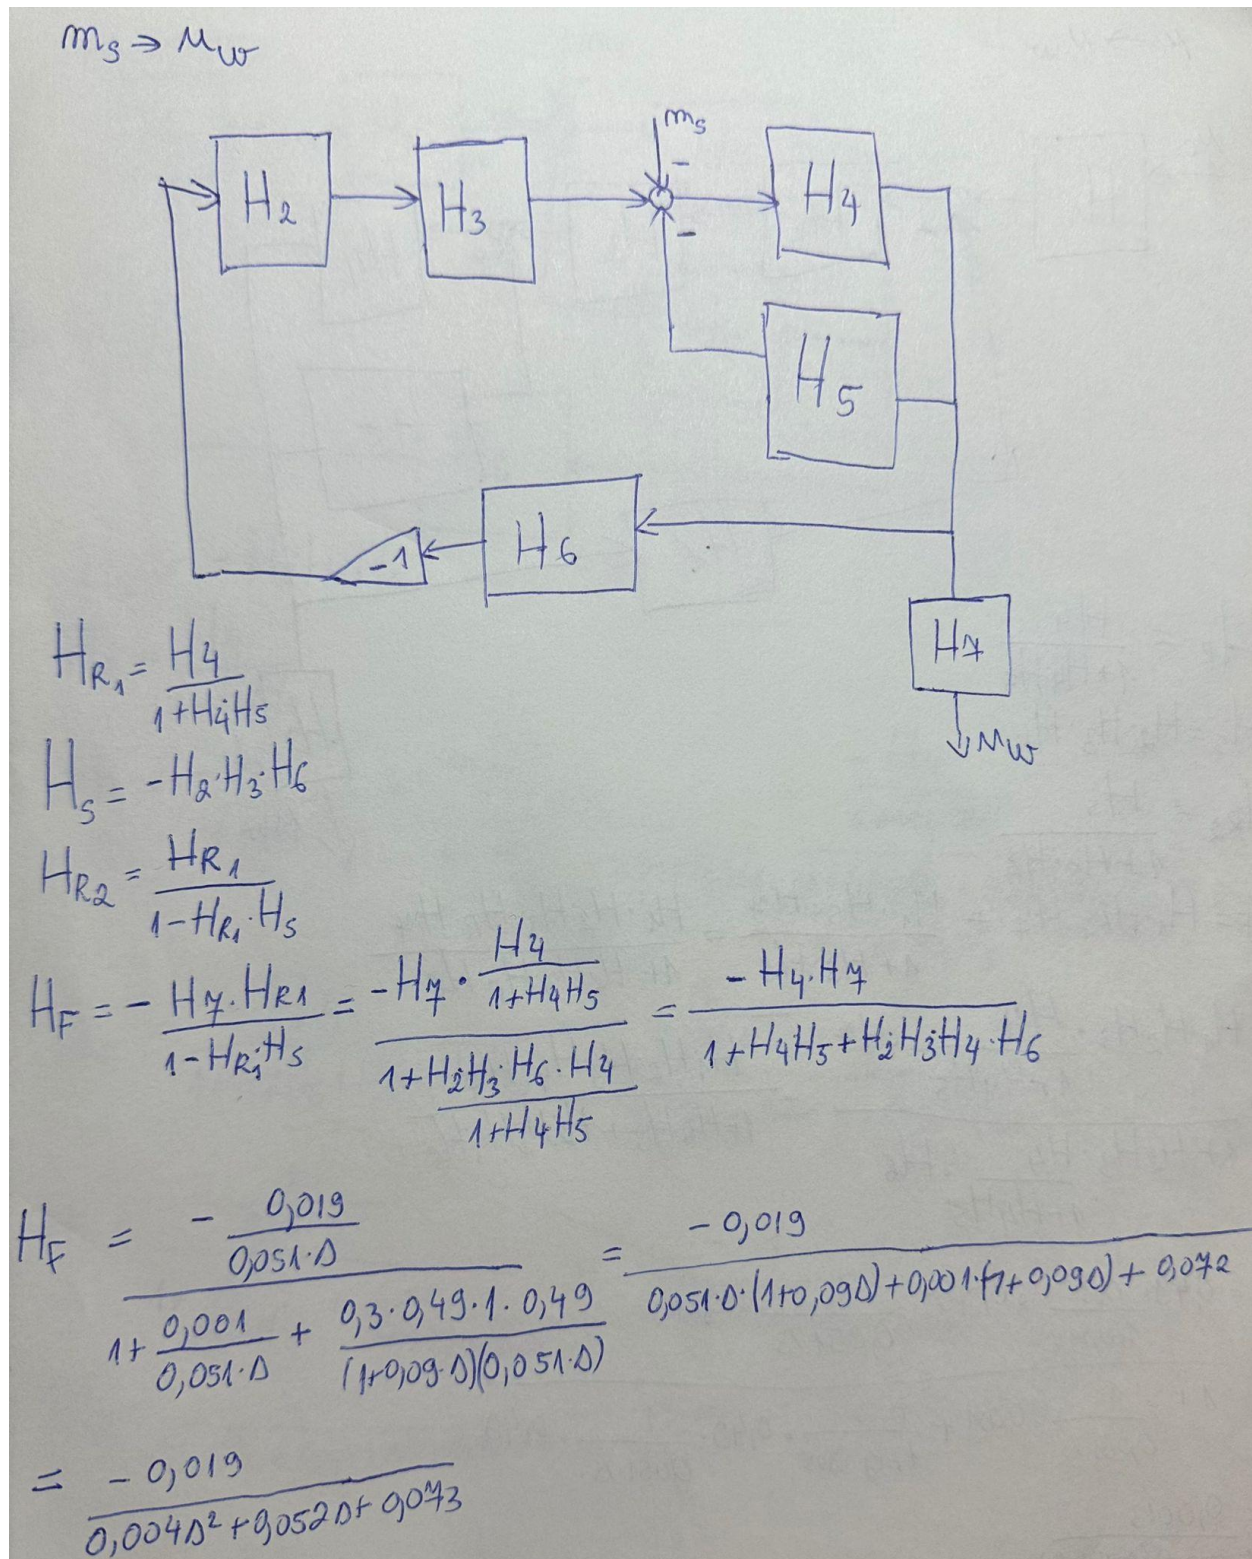 m_s → u_w
m_s
-
H_2
H_3
H_4
-
H_5
H_6
-1
H_7
u_w
H_R1 = H4 / (1+H4·H5)
H_S = -H_2·H_3·H_6
H_R2 = H_R1 / (1-H_R1·H_S)
H_F = - (H7·H_R1) / (1-H_R1·H_S) = (-H7 · H4/(1+H4H5)) / (1+H2·H3·H6·H4/(1+H4H5)) = (-H4·H7) / (1+H4H5+H2·H3·H4·H6)
H_F = (- 0,019/(0,051·s)) / (1+ 0,001/(0,051·s) + (0,3·0,49·1·0,49)/((1+0,09·s)(0,051·s))) = (-0,019) / (0,051·s·(1+0,09s)+0,001·(1+0,09s)+0,072)
= (-0,019) / (0,004s²+0,052s+0,073)